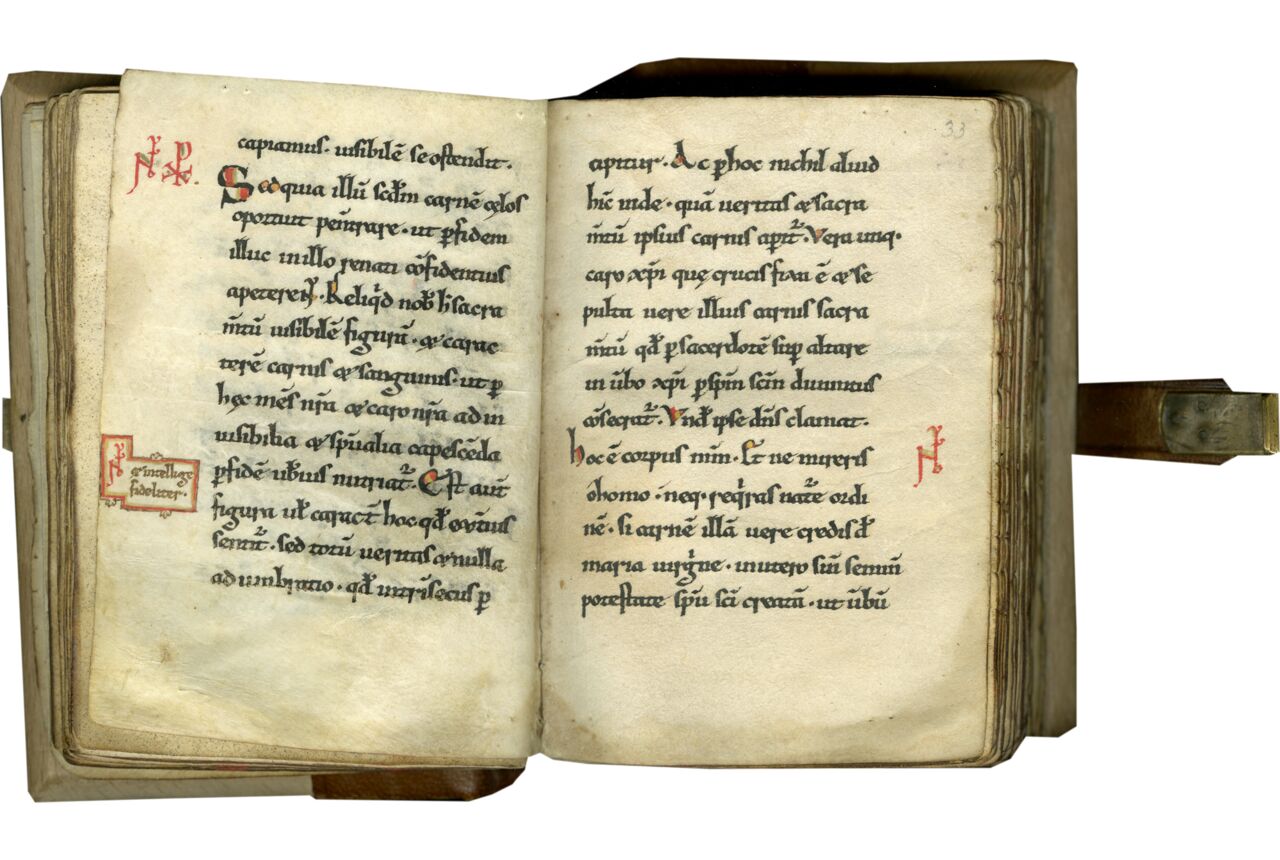 capiamus. uisibilē se ostendit.
Sed quia illū scdm carnē cęlos
oportuit penetrare. ut p fidem
illuc in illo renati cōfidentius
apeterent. Reliqd nob h sacra
mtū uisibilē figurā. & carac
terē carnis & sanguinis. ut p
hęc mēs nra & caro nra ad in
uisibilia & spualia capescēda
p fidē ubius nutriat. Est aut
& intellige
fideliter.
figura ul caract hoc qd extius
sentit. sed totū ueritas & nulla
adumbratio. qd intrisecus p
33
cipitur. Ac p hoc nichil aliud
hīc inde. quā ueritas & sacra
mtū ipsius carnis apit. Vera utiq.
caro xpi quę crucifixa ē & se
pulta uere illius carnis sacra
mtū qd p sacerdotē sup altare
in ūbo xpi p spm scm diuinitus
cōsecrat. Vnd ipse dns clamat.
hoc ē corpus mm. Et ne mireris
o homo. neq. reqras nate ordi
nē. si carnē illā uere credis d
maria uirgine. in utero sin semin
potestate spu sci creatā. ut ūbū